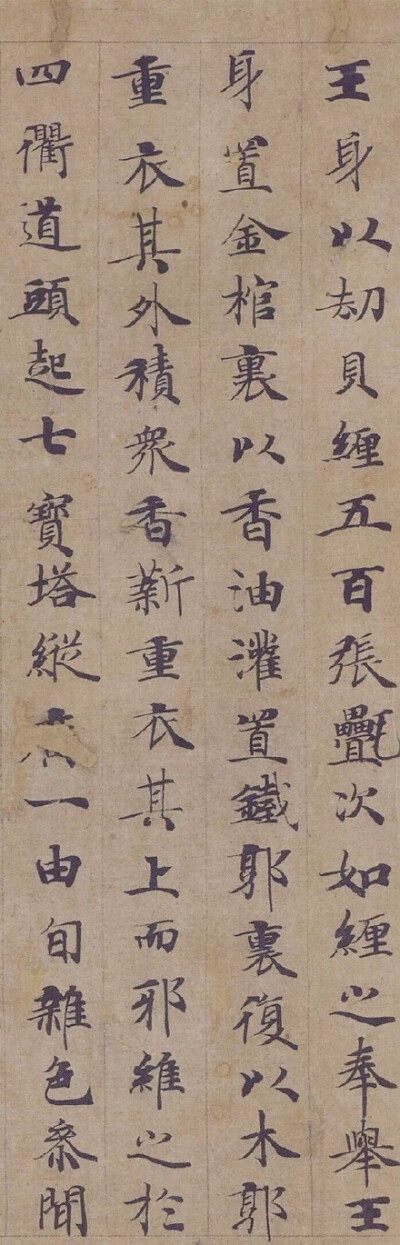 王身以劫貝纏五百張㲲次如纏之奉舉王
身置金棺裏以香油灌置鐵郭裏復以木郭
重衣其外積眾香薪重衣其上而耶維之於
四衢道頭起七寶塔縱一由旬雜色參間